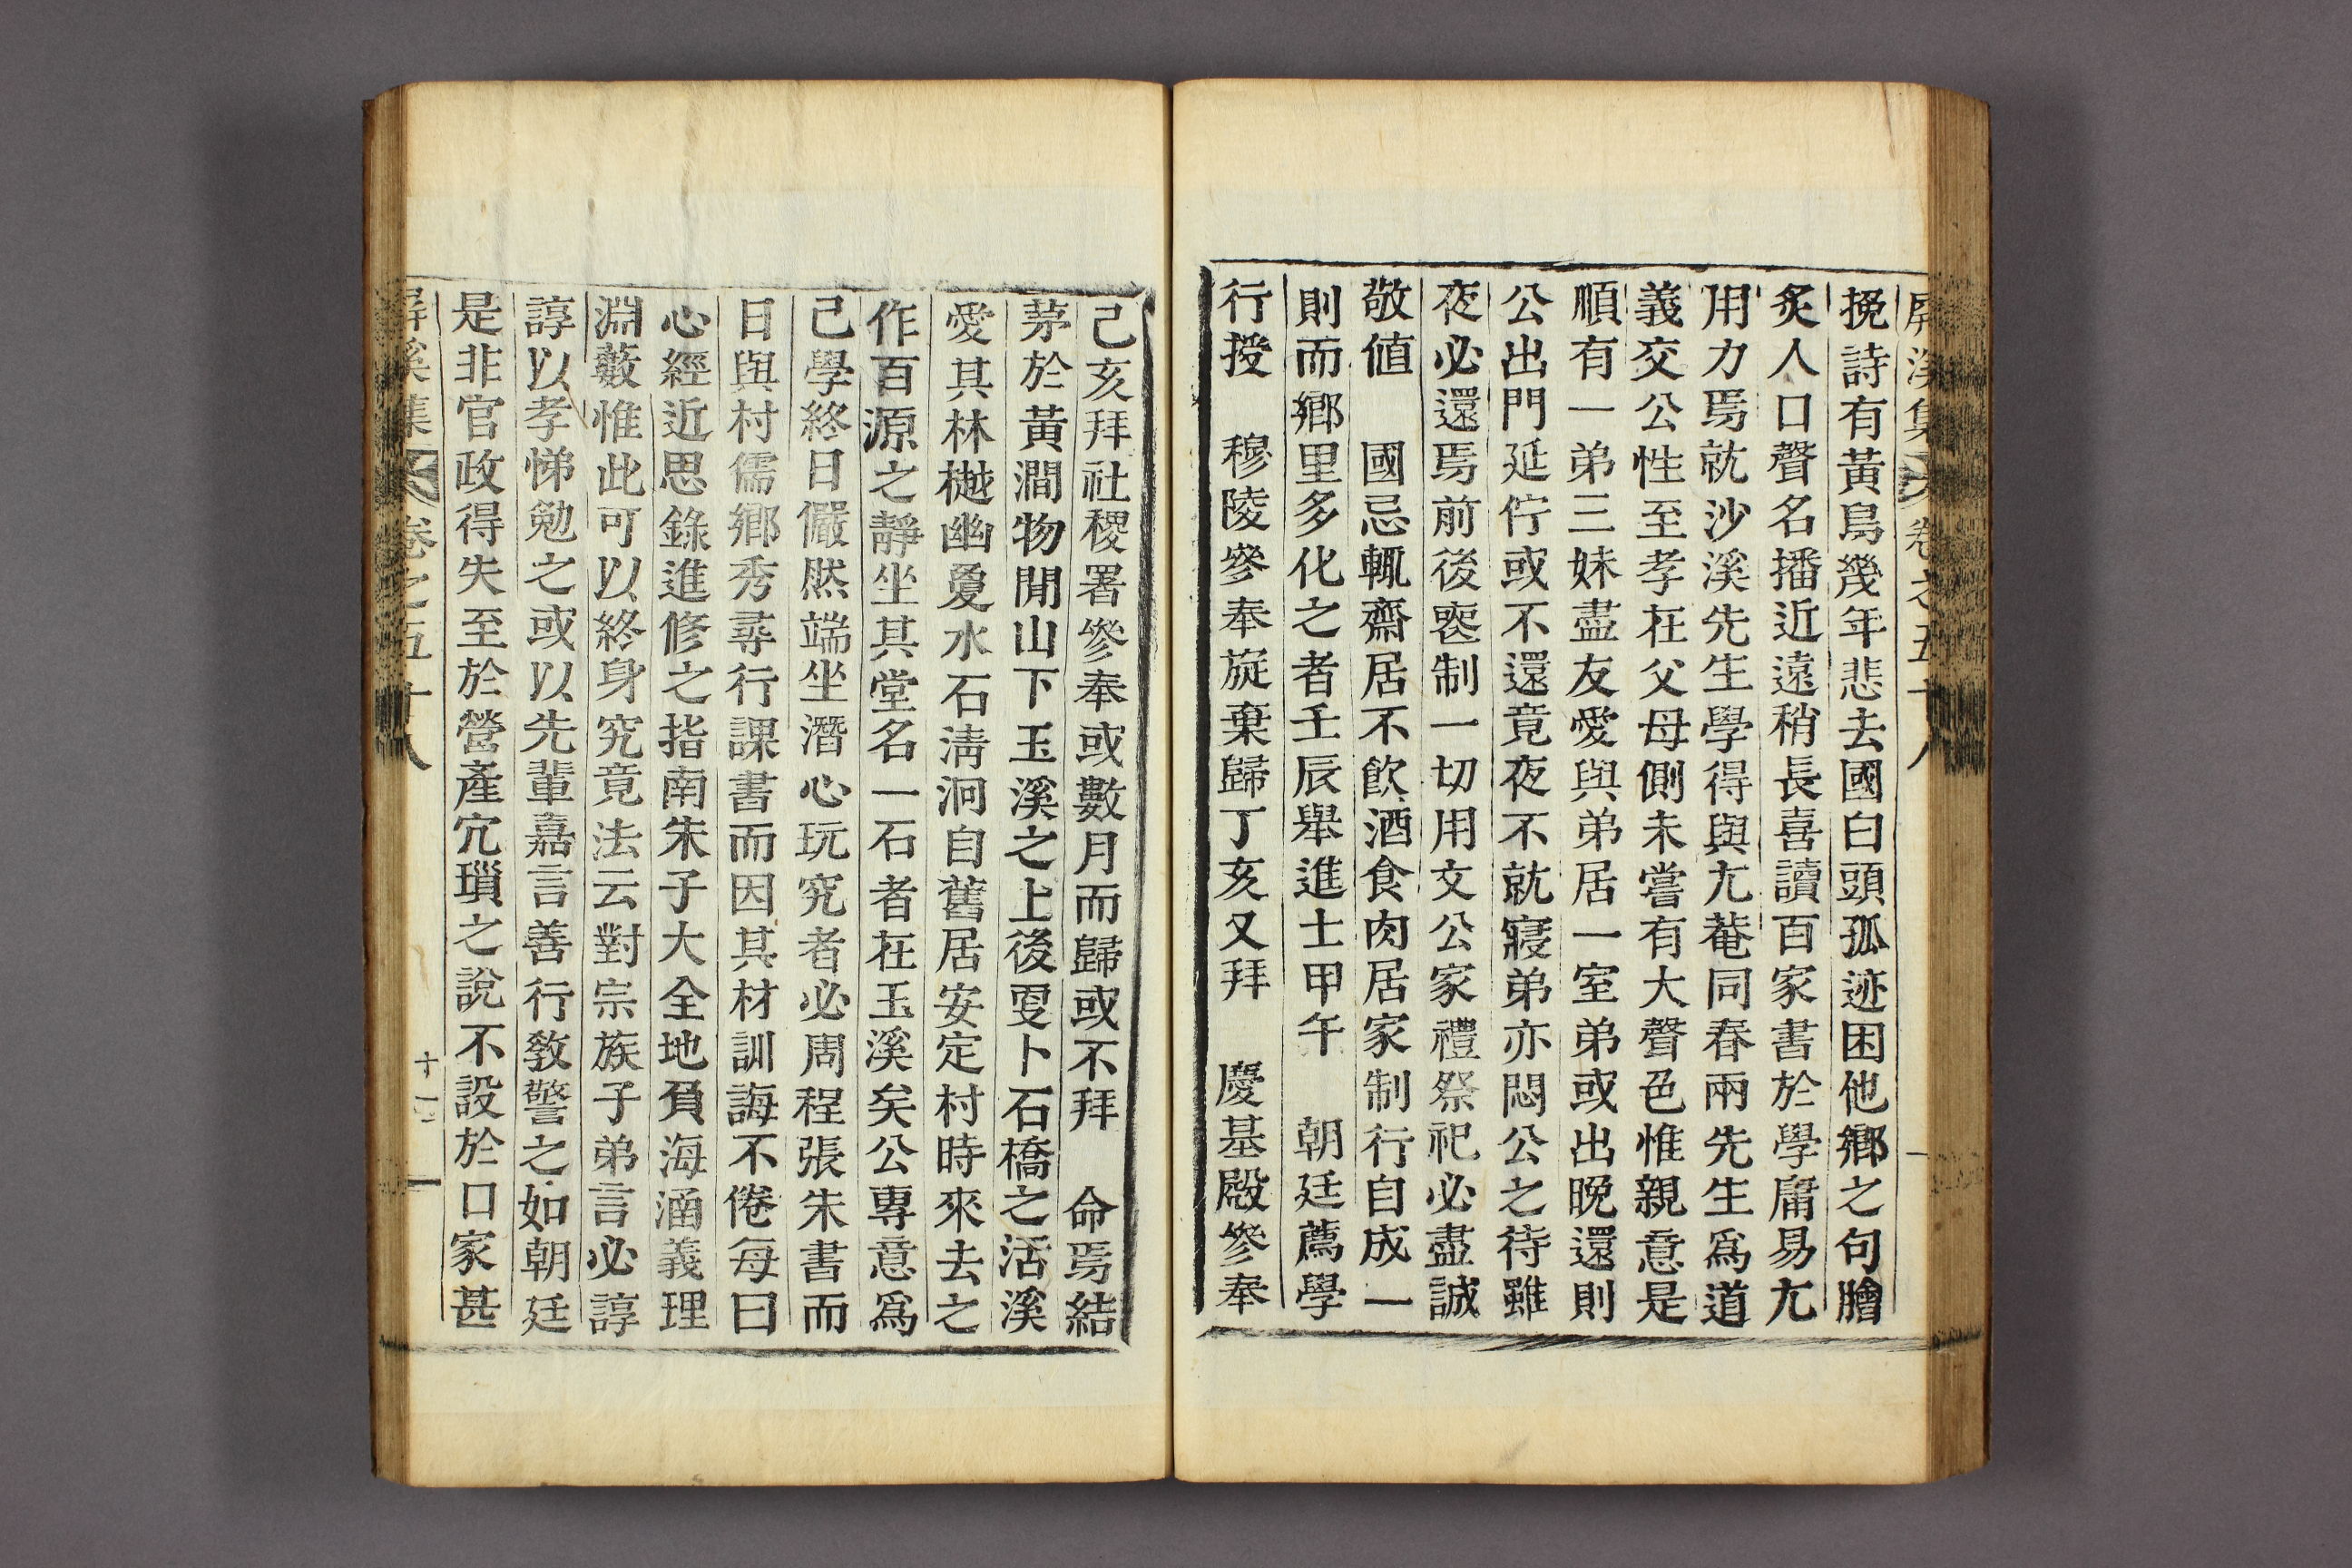 屏溪集 卷之五十八
挽詩有黃鳥幾年悲去國白頭孤迹困他鄕之句膾
炙人口聲名播近遠稍長喜讀百家書於學庸易尤
用力焉就沙溪先生學得與尤菴同春兩先生爲道
義交公性至孝在父母側未嘗有大聲色惟親意是
順有一弟三妹盡友愛與弟居一室弟或出晩還則
公出門延佇或不還竟夜不就寢弟亦悶公之待雖
夜必還焉前後喪制一切用文公家禮祭祀必盡誠
敬値 國忌輒齋居不飮酒食肉居家制行自成一
則而鄕里多化之者壬辰擧進士甲午 朝廷薦學
行授 穆陵參奉旋棄歸丁亥又拜 慶基殿參奉
己亥拜社稷署參奉或數月而歸或不拜 命焉結
茅於黃澗物閒山下玉溪之上後更卜石橋之活溪
愛其林樾幽夐水石淸泂自舊居安定村時來去之
作百源之靜坐其堂名一石者在玉溪矣公專意爲
己學終日儼然端坐潛心玩究者必周程張朱書而
日與村儒鄕秀尋行課書而因其材訓誨不倦每曰
心經近思錄進修之指南朱子大全地負海涵義理
淵藪惟此可以終身究竟法云對宗族子弟言必諄
諄以孝悌勉之或以先輩嘉言善行敎警之如朝廷
是非官政得失至於營產宂瑣之說不設於口家甚
屏溪集 卷之五十八 十一